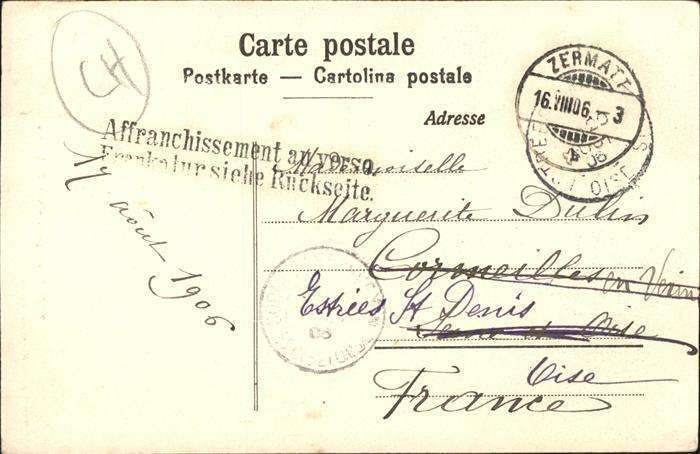 CH
Carte postale
Postkarte — Cartolina postale
Adresse
ZERMATT
16.VIII.06. - 3
OISE
Affranchissement au verso.
Frankatur siehe Rückseite.
17 août 1906
Mademoiselle
Marguerite Dubin
Cormeilles en Vexin
Estrées St Denis
Seine et Oise
Oise
France
06